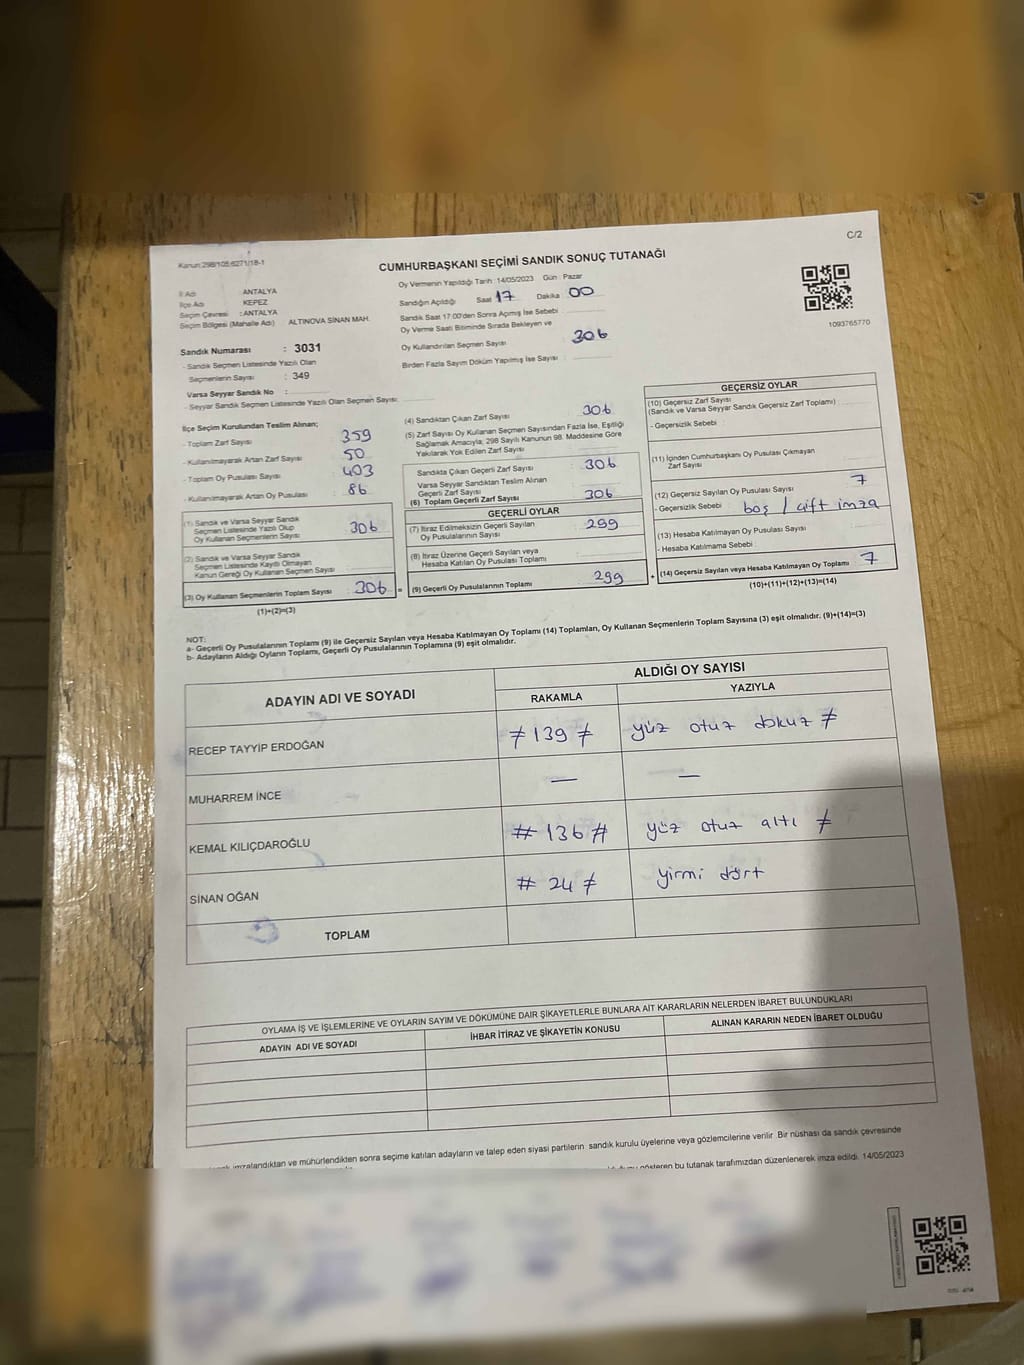 C/2
Kanun:298/105 6271/18-1
CUMHURBAŞKANI SEÇİMİ SANDIK SONUÇ TUTANAĞI
İl Adı : ANTALYA
İlçe Adı : KEPEZ
Seçim Çevresi : ANTALYA
Seçim Bölgesi (Mahalle Adı) ALTINOVA SİNAN MAH.
Sandık Numarası : 3031
- Sandık Seçmen Listesinde Yazılı Olan
Seçmenlerin Sayısı : 349
Varsa Seyyar Sandık No :
- Seyyar Sandık Seçmen Listesinde Yazılı Olan Seçmen Sayısı:
Oy Vermenin Yapıldığı Tarih :14/05/2023 Gün : Pazar
Sandığın Açıldığı Saat 17 Dakika 00
Sandık Saat 17:00'den Sonra Açımış İse Sebebi :
Oy Verme Saati Bitiminde Sırada Bekleyen ve
Oy Kullandırılan Seçmen Sayısı 306
Birden Fazla Sayım Döküm Yapılmış İse Sayısı :
1093765770
İlçe Seçim Kurulundan Teslim Alınan;
- Toplam Zarf Sayısı 359
- Kullanılmayarak Artan Zarf Sayısı 50
- Toplam Oy Pusulası Sayısı 403
- Kullanılmayarak Artan Oy Pusulası 86
(1) Sandık ve Varsa Seyyar Sandık
Seçmen Listesinde Yazılı Olup
Oy Kullanan Seçmenlerin Sayısı 306
(2) Sandık ve Varsa Seyyar Sandık
Seçmen Listesinde Kayıtlı Olmayan
Kanun Gereği Oy Kullanan Seçmen Sayısı
(3) Oy Kullanan Seçmenlerin Toplam Sayısı 306 =
(1)+(2)=(3)
(4) Sandıktan Çıkan Zarf Sayısı 306
(5) Zarf Sayısı Oy Kullanan Seçmen Sayısından Fazla İse, Eşitliği
Sağlamak Amacıyla, 298 Sayılı Kanunun 98. Maddesine Göre
Yakılarak Yok Edilen Zarf Sayısı
Sandıkta Çıkan Geçerli Zarf Sayısı 306
Varsa Seyyar Sandıktan Teslim Alınan
Geçerli Zarf Sayısı
(6) Toplam Geçerli Zarf Sayısı 306
GEÇERLİ OYLAR
(7) İtiraz Edilmeksizin Geçerli Sayılan
Oy Pusulalarının Sayısı 299
(8) İtiraz Üzerine Geçerli Sayılan veya
Hesaba Katılan Oy Pusulası Toplamı
(9) Geçerli Oy Pusulalarının Toplamı 299 +
GEÇERSİZ OYLAR
(10) Geçersiz Zarf Sayısı
(Sandık ve Varsa Seyyar Sandık Geçersiz Zarf Toplamı)
- Geçersizlik Sebebi
(11) İçinden Cumhurbaşkanı Oy Pusulası Çıkmayan
Zarf Sayısı
(12) Geçersiz Sayılan Oy Pusulası Sayısı 7
- Geçersizlik Sebebi boş / çift imza
(13) Hesaba Katılmayan Oy Pusulası Sayısı
- Hesaba Katılmama Sebebi
(14) Geçersiz Sayılan veya Hesaba Katılmayan Oy Toplamı 7
(10)+(11)+(12)+(13)=(14)
NOT:
a- Geçerli Oy Pusulalarının Toplamı (9) ile Geçersiz Sayılan veya Hesaba Katılmayan Oy Toplamı (14) Toplamları, Oy Kullanan Seçmenlerin Toplam Sayısına (3) eşit olmalıdır. (9)+(14)=(3)
b- Adayların Aldığı Oyların Toplamı, Geçerli Oy Pusulalarının Toplamına (9) eşit olmalıdır.
ADAYIN ADI VE SOYADI
ALDIĞI OY SAYISI
RAKAMLA YAZIYLA
RECEP TAYYİP ERDOĞAN ≠ 139 ≠ yüz otuz dokuz ≠
MUHARREM İNCE — —
KEMAL KILIÇDAROĞLU # 136 # yüz otuz altı ≠
SİNAN OĞAN # 24 ≠ yirmi dört
TOPLAM
OYLAMA İŞ VE İŞLEMLERİNE VE OYLARIN SAYIM VE DÖKÜMÜNE DAİR ŞİKAYETLERLE BUNLARA AİT KARARLARIN NELERDEN İBARET BULUNDUKLARI
ADAYIN ADI VE SOYADI İHBAR İTİRAZ VE ŞİKAYETİN KONUSU ALINAN KARARIN NEDEN İBARET OLDUĞU
imzalandıktan ve mühürlendikten sonra seçime katılan adayların ve talep eden siyasi partilerin sandık kurulu üyelerine veya gözlemcilerine verilir. Bir nüshası da sandık çevresinde
gösteren bu tutanak tarafımızdan düzenlenerek imza edildi. 14/05/2023